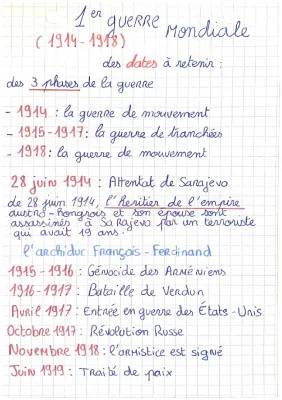 1er guerre Mondiale
(1914-1918)
des dates à retenir :
des 3 phases de la guerre
- 1914 : la guerre de mouvement
- 1915-1917 : la guerre de tranchées
- 1918 : la guerre de mouvement
28 juin 1914 : Attentat de Sarajevo
de 28 juin 1914, l'Héritier de l'empire
austro-hongrois et son épouse sont
assassinés à Sarajevo par un terroriste
qui avait 19 ans.
l'archiduc François-Ferdinand
1915-1916 : Génocide des Arméniens
1916-1917 : Bataille de Verdun
Avril 1917 : Entrée en guerre des États-Unis
Octobre 1917 : Révolution Russe
Novembre 1918 : l'armistice est signé
Juin 1919 : Traité de paix